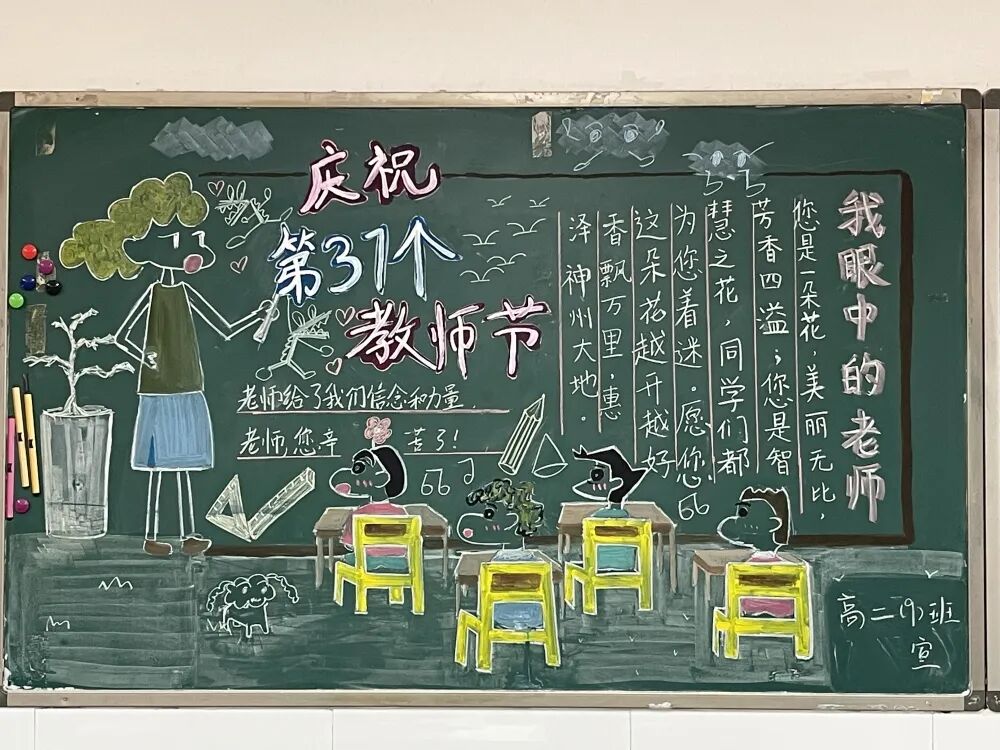 庆祝
第37个
教师节
老师给了我们信念和力量
老师,您辛苦了!
我眼中的老师
您是一朵花,美丽无比,
芳香四溢;您是智
慧之花,同学们都
为您着迷。愿您
这朵花越开越好
香飘万里,惠
泽神州大地。
高二(9)班
宣